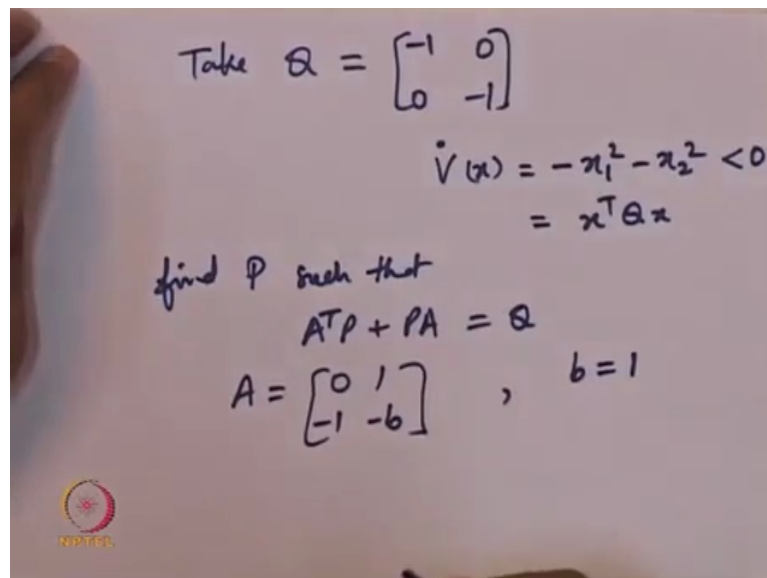 Take Q = [-1 0
0 -1]
V̇(x) = -x₁² - x₂² < 0
= xᵀQx
find P such that
AᵀP + PA = Q
A = [0 1
-1 -b] , b = 1
NPTEL